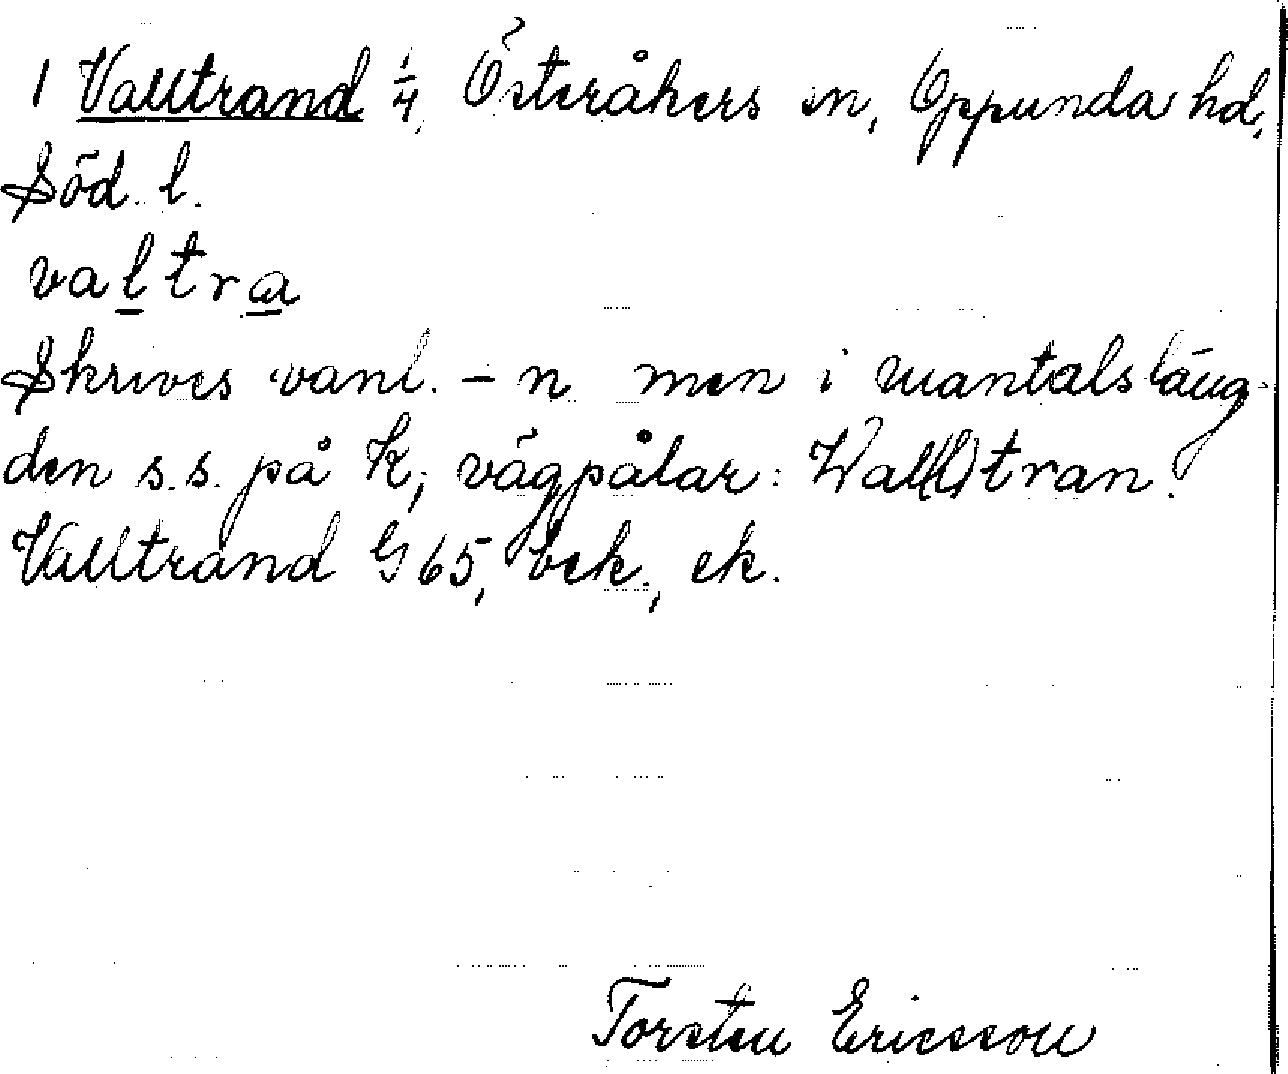 1 Valltrand 1/4, Österåkers sn, Oppunda hd,
Söd. l.
valtra
Skrives vanl. -n men i mantalsläng-
den s.s. på K; vägpålar: Wal(l)tran.
Valltrand G 65, bek., ek.
Torsten Ericsson